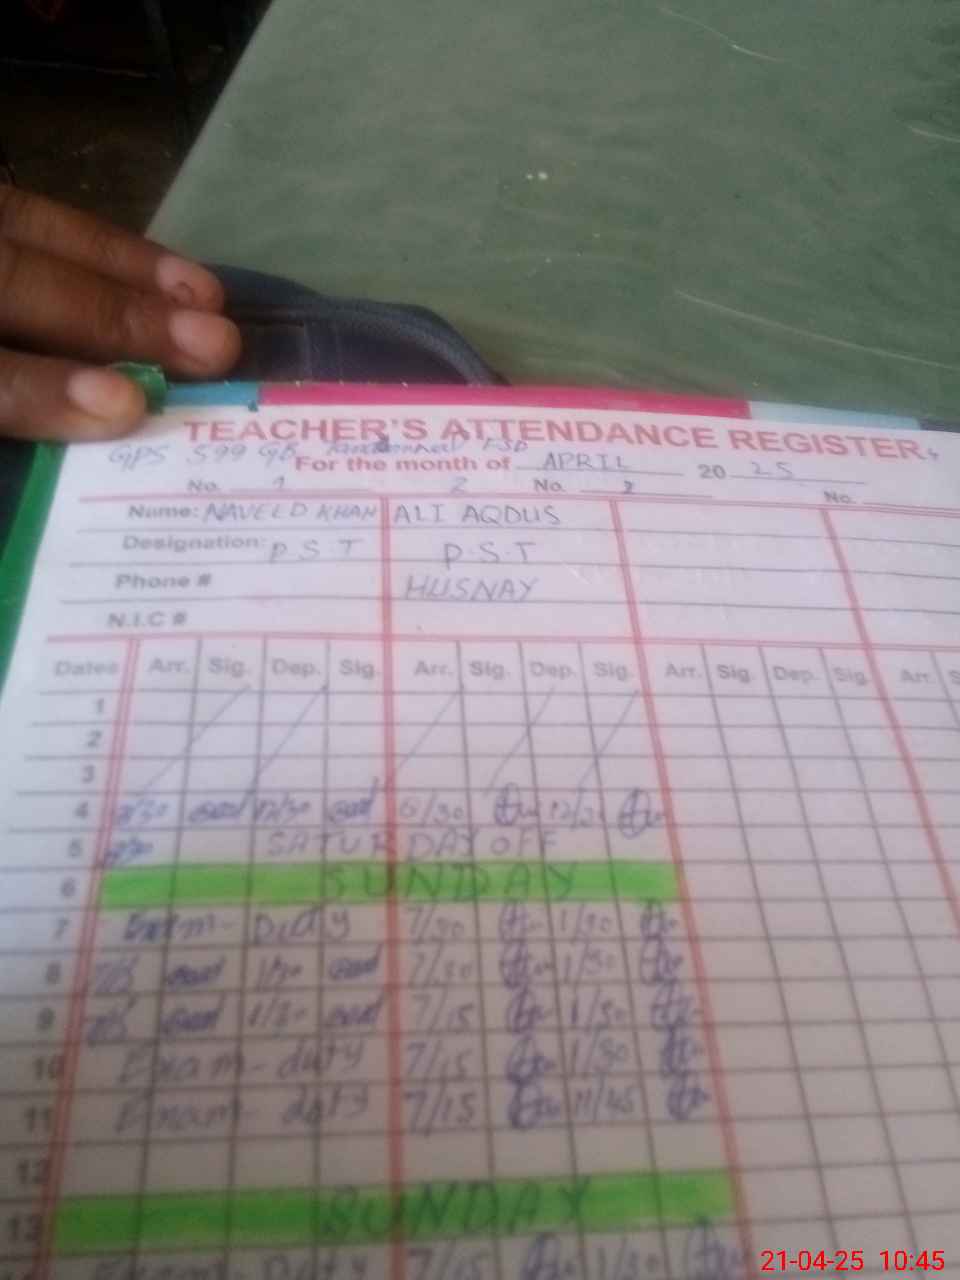 TEACHER'S ATTENDANCE REGISTER
GPS 599 GB FSD
For the month of APRIL 20 25
No. 1 2 No. 2 No.
Name: NAVEED KHAN ALI AQDUS
Designation: P S T P.S.T
Phone # HUSNAY
N.I.C #
Dates Arr. Sig. Dep. Sig. Arr. Sig. Dep. Sig. Arr. Sig. Dep. Sig. Arr.
1
2
3
4 12/30 6/30
5 SATURDAY OFF
6 SUNDAY
7 Exam-Duty 7/30 1/30
8 1/30 7/30 1/30
9 1/30 7/15 1/30
10 Exam-duty 7/15 1/30
11 Exam-duty 7/15 11/45
12
13 SUNDAY
Duty 7/15 1/30
21-04-25 10:45